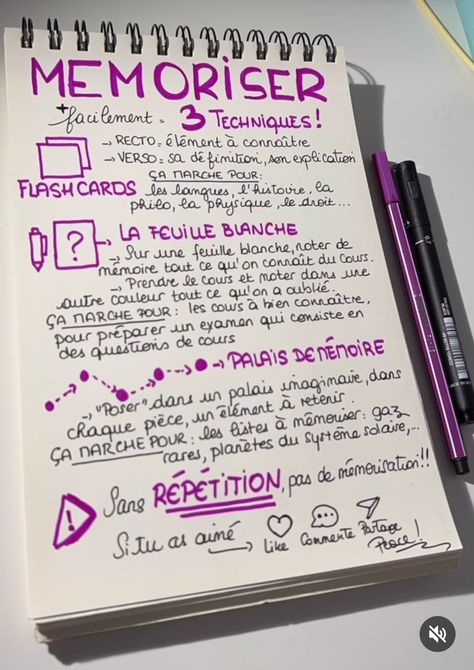 MEMORISER
+ facilement = 3 TECHNIQUES!
→ RECTO = élément à connaître
→ VERSO = sa définition, son explication
ÇA MARCHE POUR:
FLASHCARDS les langues, l'histoire, la
philo, la physique, le droit...
? → LA FEUILLE BLANCHE
→ Sur une feuille blanche, noter de
mémoire tout ce qu'on connaît du cours.
→ Prendre le cours et noter dans une
autre couleur tout ce qu'on a oublié.
ÇA MARCHE POUR: les cours à bien connaître,
pour préparer un examen qui consiste en
des questions de cours
→ PALAIS DE MÉMOIRE
→ "Poser" dans un palais imaginaire, dans
chaque pièce, un élément à retenir.
ÇA MARCHE POUR: les listes à mémoriser: gaz
rares, planètes du système solaire,...
! Sans RÉPÉTITION, pas de mémorisation!!
Si tu as aimé → Like Commente Partage
Peace!